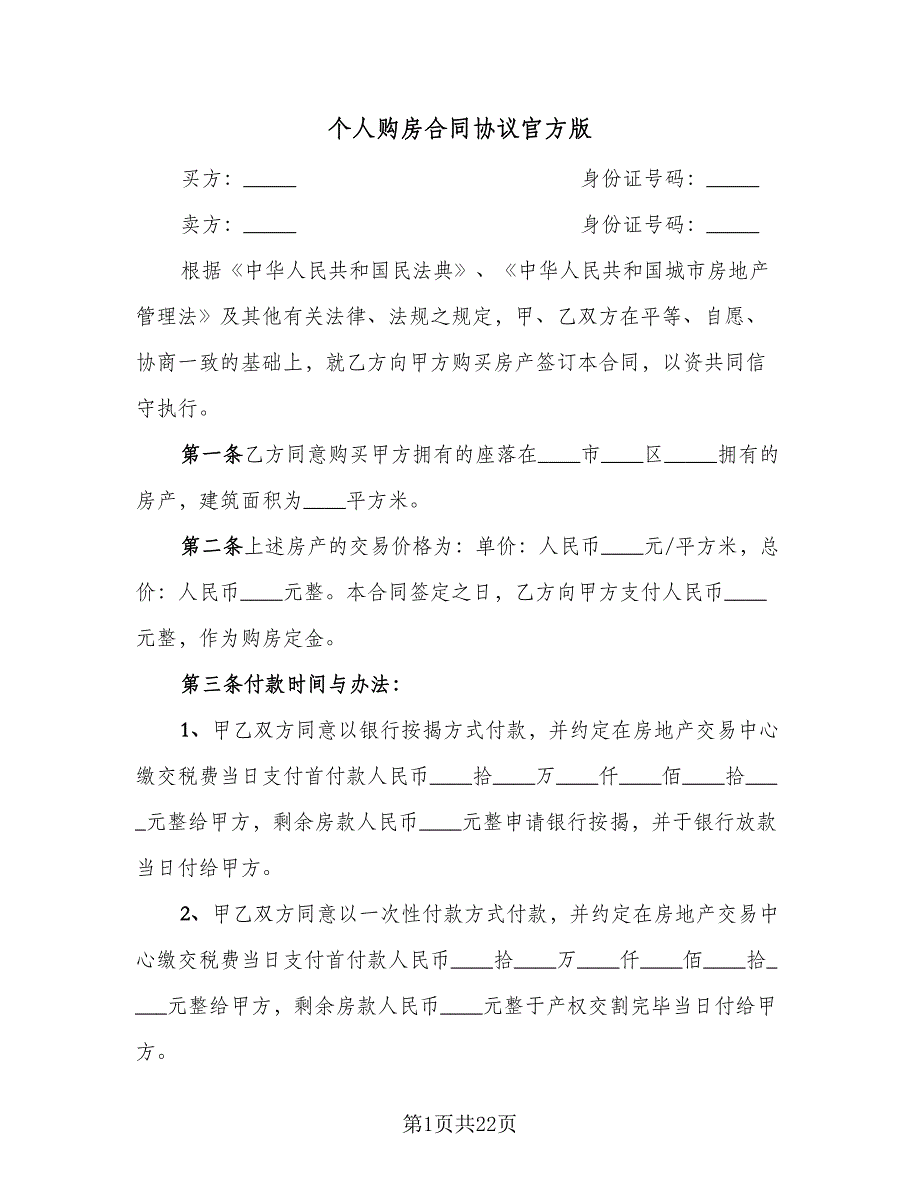 个人购房合同协议官方版
买方：_____ 身份证号码：_____
卖方：_____ 身份证号码：_____
根据《中华人民共和国民法典》、《中华人民共和国城市房地产
管理法》及其他有关法律、法规之规定，甲、乙双方在平等、自愿、
协商一致的基础上，就乙方向甲方购买房产签订本合同，以资共同信
守执行。
第一条乙方同意购买甲方拥有的座落在____市____区_____拥有的
房产，建筑面积为____平方米。
第二条上述房产的交易价格为：单价：人民币____元/平方米，总
价：人民币____元整。本合同签定之日，乙方向甲方支付人民币____
元整，作为购房定金。
第三条付款时间与办法：
1、甲乙双方同意以银行按揭方式付款，并约定在房地产交易中心
缴交税费当日支付首付款人民币____拾____万____仟____佰____拾___
_元整给甲方，剩余房款人民币____元整申请银行按揭，并于银行放款
当日付给甲方。
2、甲乙双方同意以一次性付款方式付款，并约定在房地产交易中
心缴交税费当日支付首付款人民币____拾____万____仟____佰____拾_
___元整给甲方，剩余房款人民币____元整于产权交割完毕当日付给甲
方。
第1页共22页